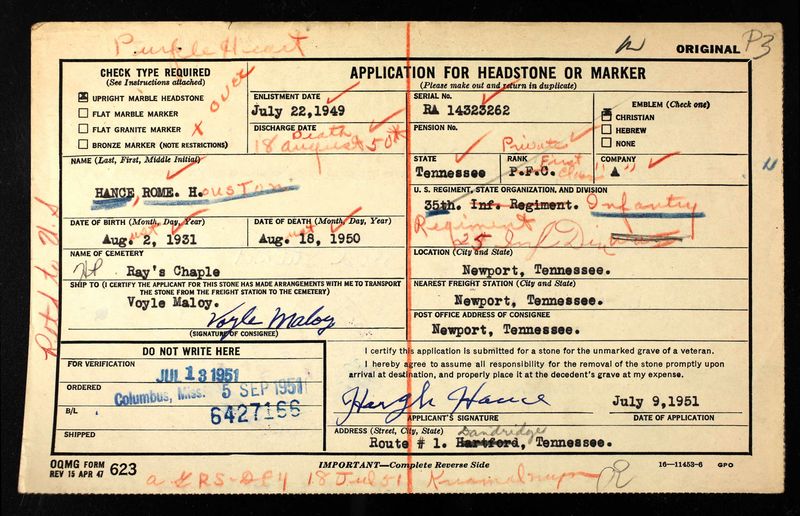 Purple Heart
ORIGINAL P3
CHECK TYPE REQUIRED
(See Instructions attached)
UPRIGHT MARBLE HEADSTONE
FLAT MARBLE MARKER
FLAT GRANITE MARKER X
BRONZE MARKER (NOTE RESTRICTIONS)
over
APPLICATION FOR HEADSTONE OR MARKER
(Please make out and return in duplicate)
ENLISTMENT DATE
July 22,1949
DISCHARGE DATE
Death
18 August 50
SERIAL No.
RA 14323262
PENSION No.
EMBLEM (Check one)
CHRISTIAN
HEBREW
NONE
NAME (Last, First, Middle Initial)
HANCE, ROME. H.ouston
STATE
Tennessee
RANK
Private First Class
P.F.C.
COMPANY
"A"
DATE OF BIRTH (Month, Day, Year)
Aug.ust 2, 1931
DATE OF DEATH (Month, Day, Year)
Aug.ust 18, 1950
U. S. REGIMENT, STATE ORGANIZATION, AND DIVISION
35th. Inf. Regiment. Infantry
Regiment
25 Inf Div
NAME OF CEMETERY
Ray's Chaple
LOCATION (City and State)
Newport, Tennessee.
SHIP TO (I CERTIFY THE APPLICANT FOR THIS STONE HAS MADE ARRANGEMENTS WITH ME TO TRANSPORT
THE STONE FROM THE FREIGHT STATION TO THE CEMETERY)
Voyle Maloy.
Voyle Maloy
(SIGNATURE OF CONSIGNEE)
NEAREST FREIGHT STATION (City and State)
Newport, Tennessee.
POST OFFICE ADDRESS OF CONSIGNEE
Newport, Tennessee.
DO NOT WRITE HERE
FOR VERIFICATION
JUL 13 1951
ORDERED
Columbus, Miss. 5 SEP 1951
B/L
6427166
SHIPPED
I certify this application is submitted for a stone for the unmarked grave of a veteran.
I hereby agree to assume all responsibility for the removal of the stone promptly upon
arrival at destination, and properly place it at the decedent's grave at my expense.
Hugh Hance
July 9,1951
APPLICANT'S SIGNATURE
DATE OF APPLICATION
ADDRESS (Street, City, State)
Dandridge
Route # 1. Hartford, Tennessee.
OQMG FORM
REV 15 APR 47 623
IMPORTANT—Complete Reverse Side
16—11453-6 GPO
18 Jul 51